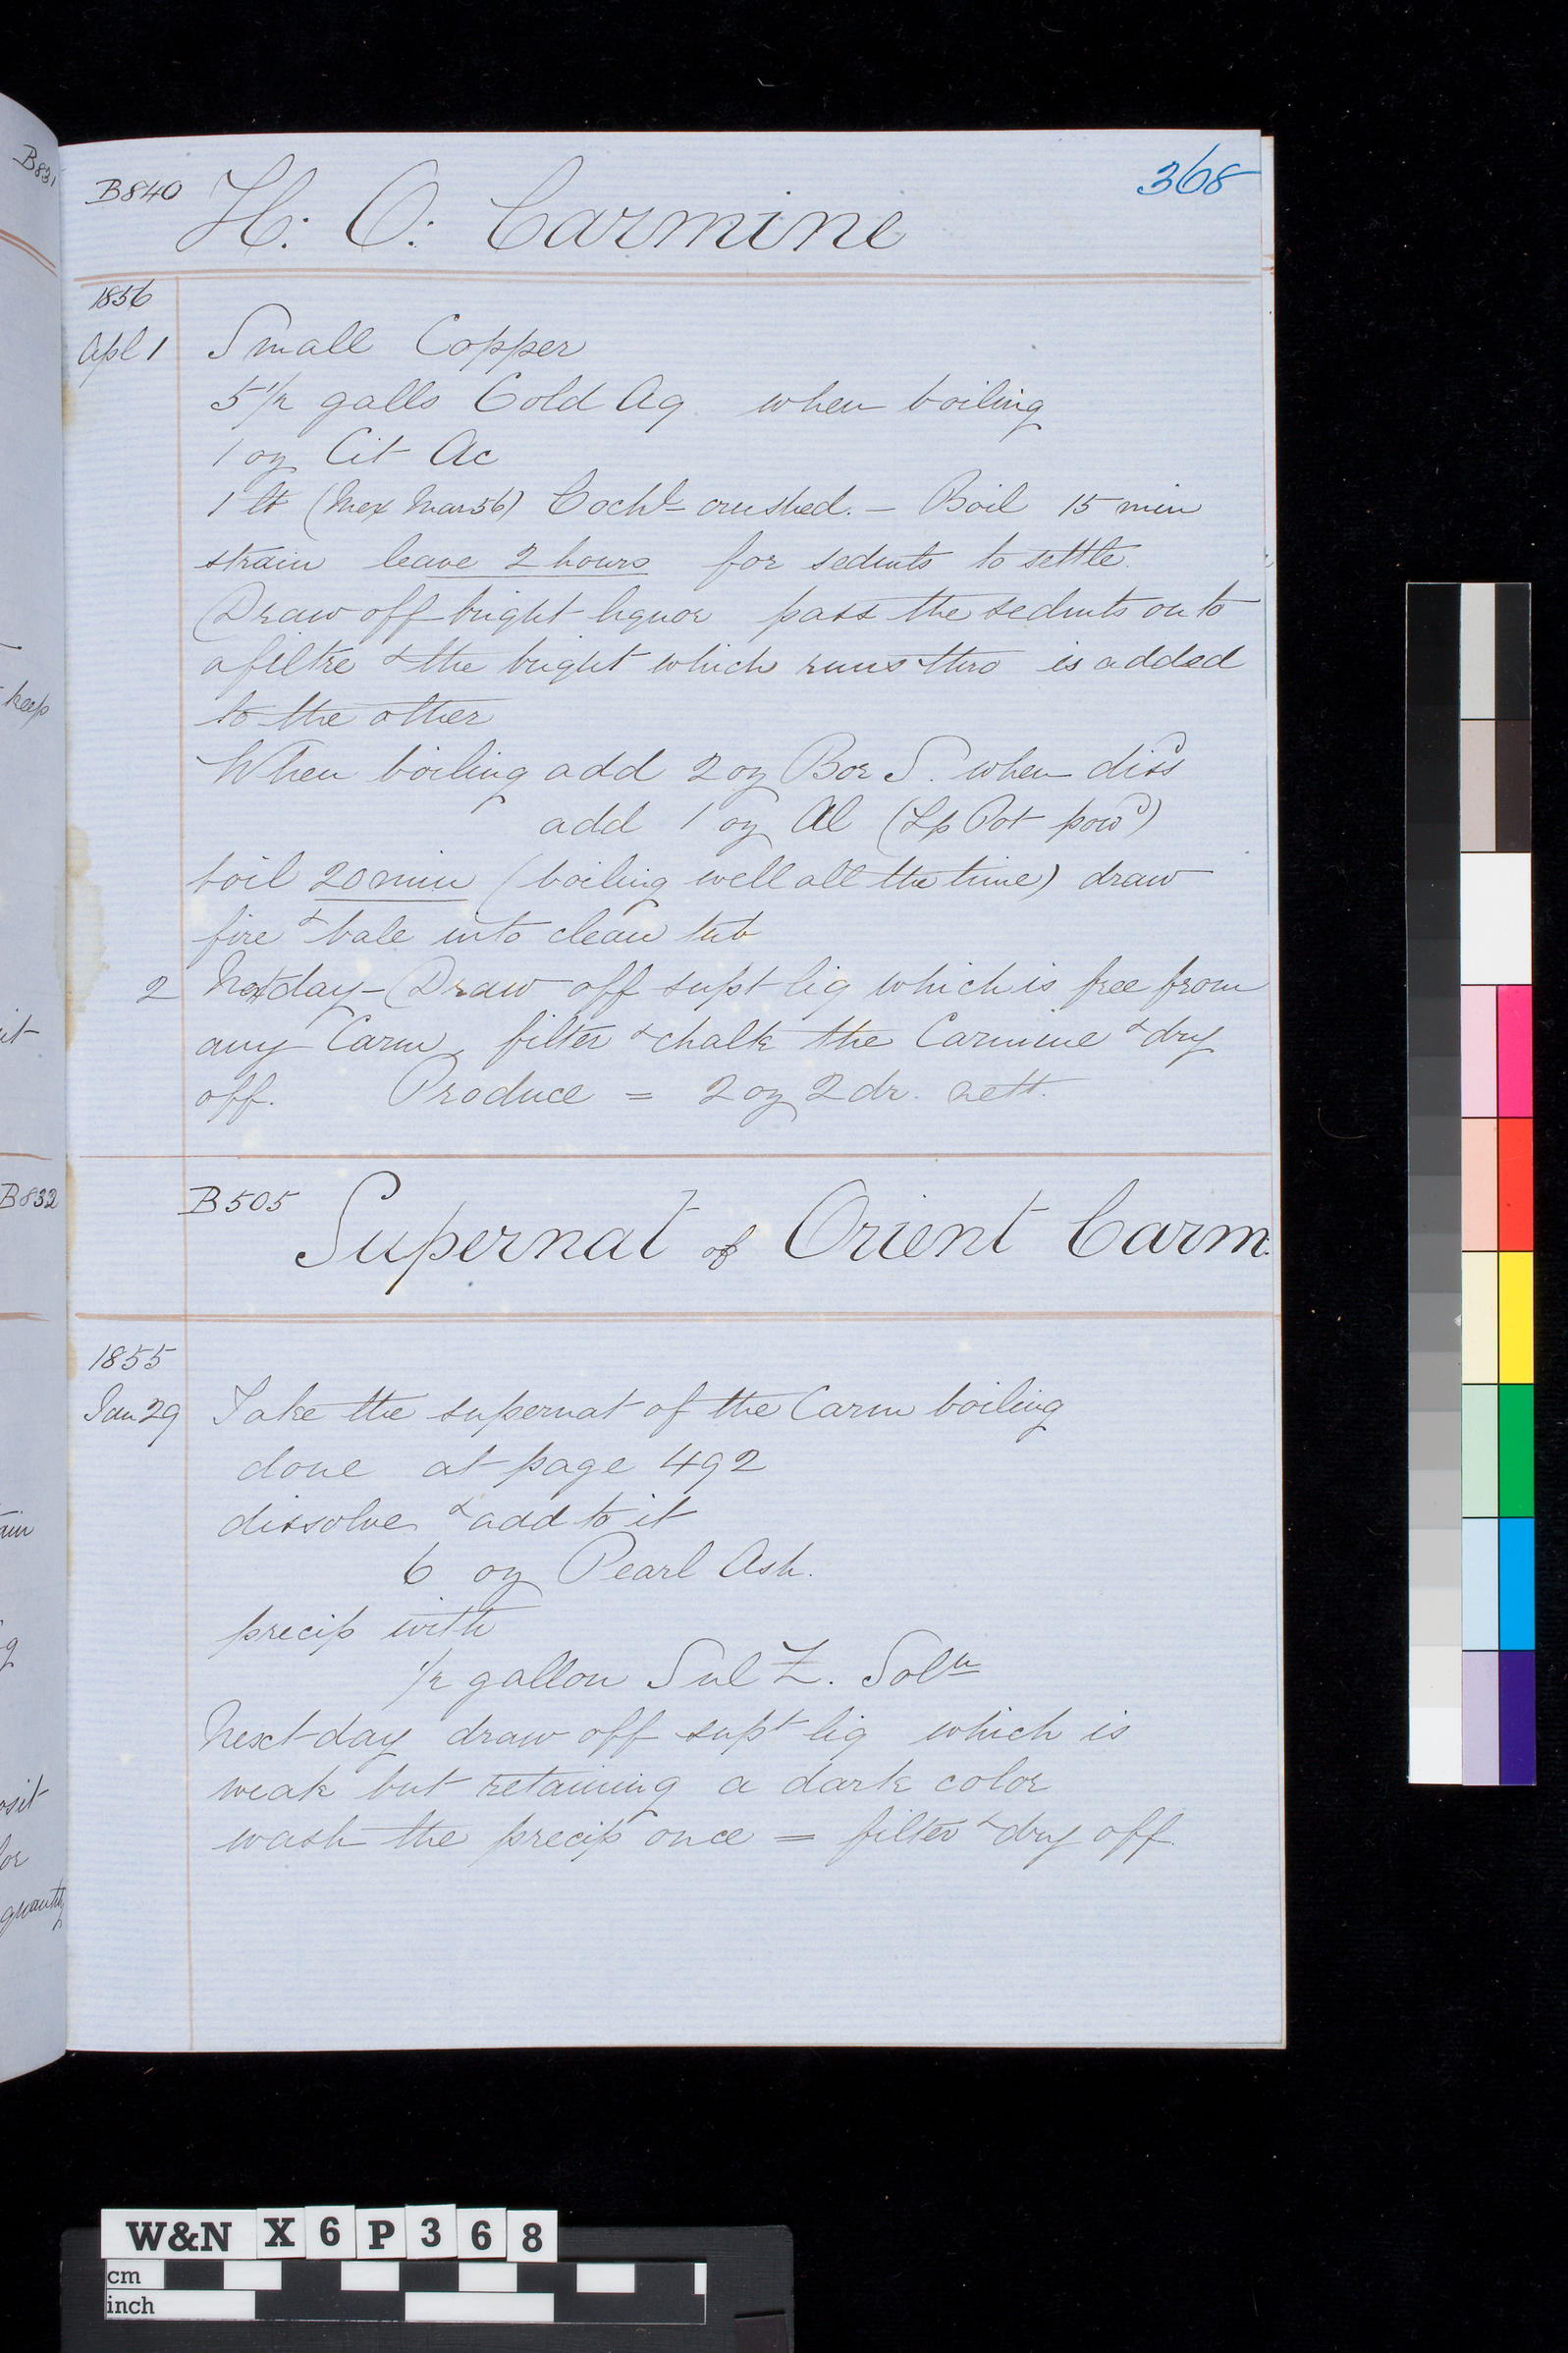 368
B840 H: O: Carmine
1856
Apl 1 Small Copper
5 1/2 galls Cold Aq when boiling
1 oz Cit Ac
1 lb (Mex Mar 56) Cochl crushed. – Boil 15 min
strain leave 2 hours for sedmts to settle.
Draw off bright liquor pass the sedmts on to
a filtre & the bright which runs thro is added
to the other
When boiling add 2 oz Bor S. when dissd
add 1 oz Al (Lp Pot powd)
boil 20 min (boiling well all the time) draw
fire & bale into clean tub
2 Next day – Draw off supt liq which is free from
any Carm, filter & chalk the Carmine & dry
off. Produce = 2 oz 2 dr. nett.
B505 Supernat of Orient Carm.
1855
Jan 29 Take the supernat of the Carm boiling
done at page 492
dissolve & add to it
6 oz Pearl Ash.
precip with
1/2 gallon Sul Z. Soln
Next day draw off supt liq which is
weak but retaining a dark color
wash the precip once = filter & dry off.
B831
keep
it
B832
osit
or
quantity
W&N X6P368
cm
inch